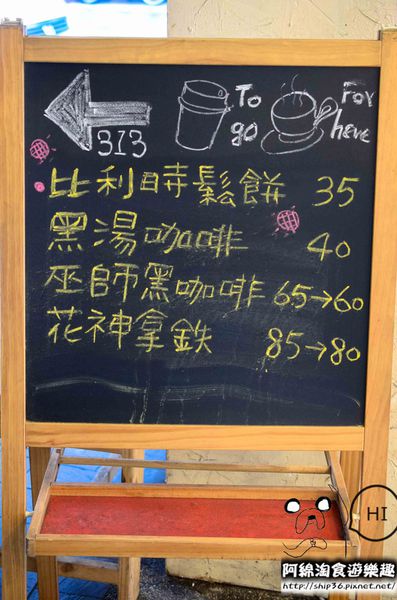 313
To go
For here
比利時鬆餅 35
黑湯咖啡 40
巫師黑咖啡 65→60
花神拿鉄 85→80
HI
阿綿淘食遊樂趣
http://ship36.pixnet.net/